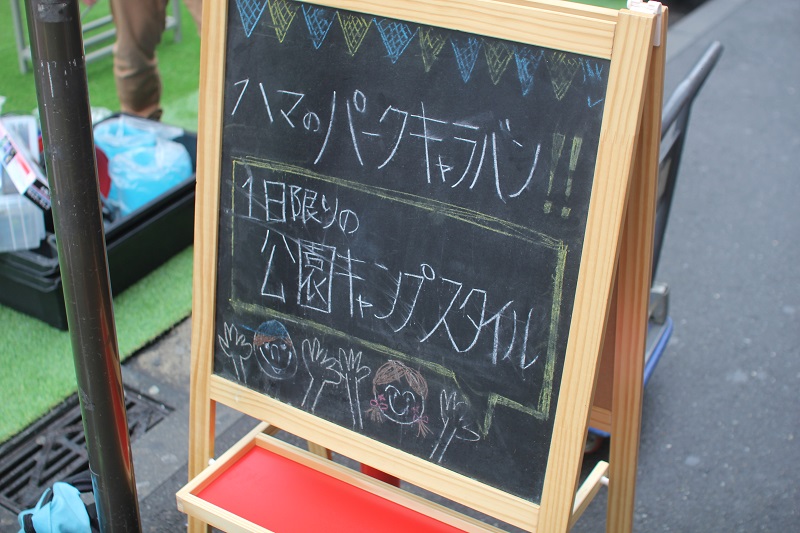 ハマのパークキャラバン!!
1日限りの
公園キャンプスタイル